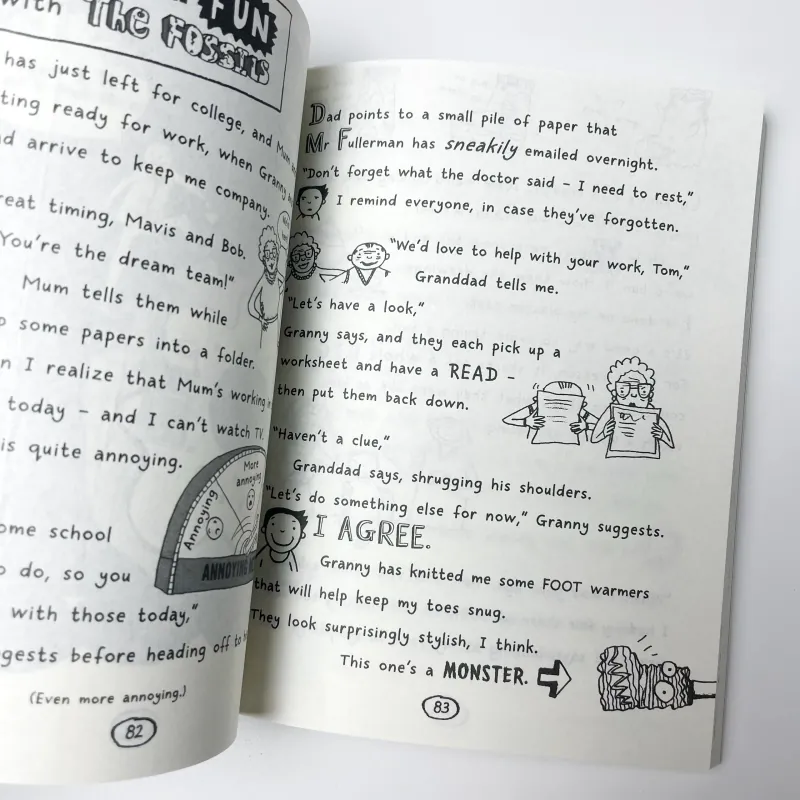 with The FUN
FOSSILS
has just left for college, and Mum
ting ready for work, when Granny
d arrive to keep me company.
reat timing, Mavis and Bob.
You're the dream team!"
Mum tells them while
some papers into a folder.
n I realize that Mum's working
today – and I can't watch TV.
is quite annoying.
More
annoying
Annoying
ANNOYING
ome school
do, so you
with those today,"
gests before heading off to
(Even more annoying.)
82
Dad points to a small pile of paper that
Mr Fullerman has sneakily emailed overnight.
"Don't forget what the doctor said – I need to rest,"
I remind everyone, in case they've forgotten.
"We'd love to help with your work, Tom,"
Granddad tells me.
"Let's have a look,"
Granny says, and they each pick up a
worksheet and have a READ –
then put them back down.
"Haven't a clue,"
Granddad says, shrugging his shoulders.
"Let's do something else for now," Granny suggests.
I AGREE.
Granny has knitted me some FOOT warmers
that will help keep my toes snug.
They look surprisingly stylish, I think.
This one's a MONSTER.
83